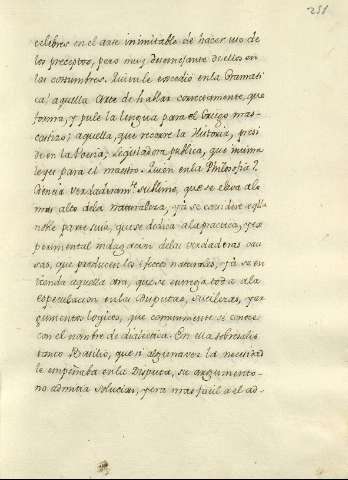 251
celebres en el arte inimitable de hacer uso de
los preceptos, pero muy desemejante de ellos en
las costumbres. Quien le excedió en la Gramati-
ca? aquella Arte de hablar correctamente, que
forma, y pule la lengua para el Griego mas
castizo; aquella, que recorre la Historia, presi
de en la Poesia; Legisladora publica, que
leyes para el maestro. Quien en la Philosofia?
Ciencia verdaderamte sublime, que se eleva a lo
mas alto de la naturaleza, yá se considere aqlla
noble parte suia, que se dedica a la practica, y ex
perimental indagacion de las verdaderas cau
sas, que producen los efectos naturales, yá se en
tienda aquella otra, que se entrega toda a la
especulacion en las Disputas, sutilezas, y ar
gumentos logicos, que comunmente se conoce
con el nombre de dialectica. En esta sobresalió
tanto Basilio, que si alguna vez la necesidad
le empeñaba en la Disputa, su argumento
no admitia solucion, y era mas facil a el ad-